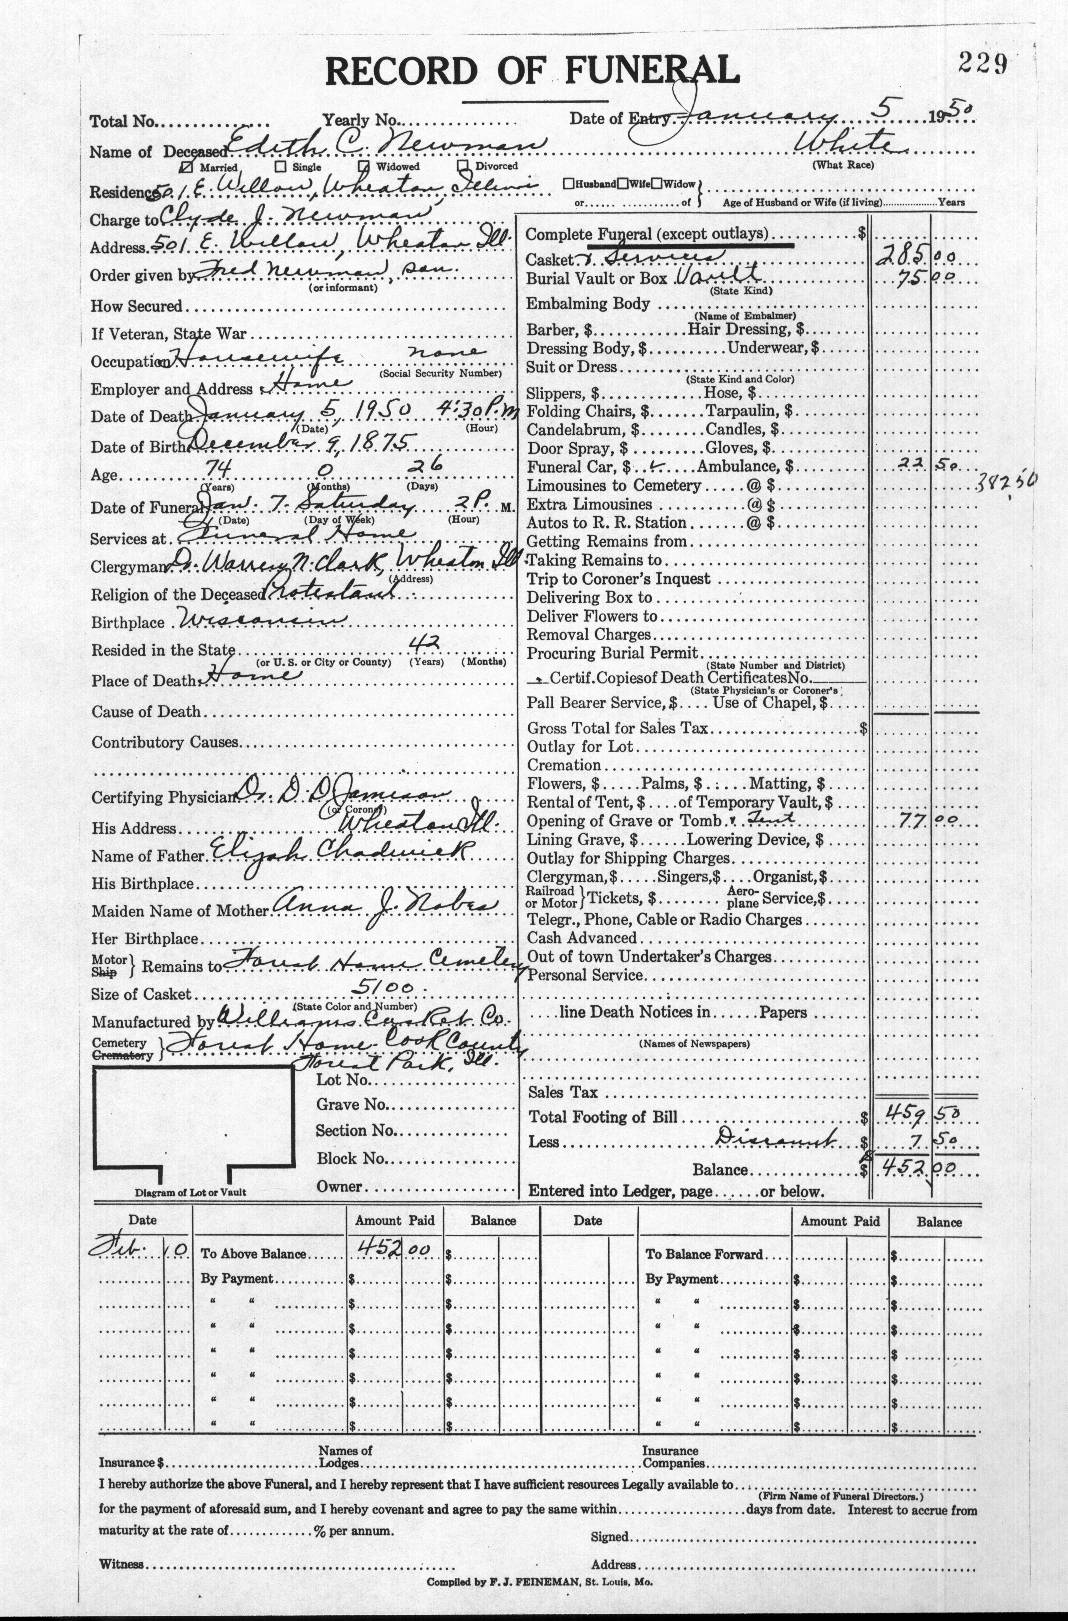 229
RECORD OF FUNERAL
Total No. Yearly No. Date of Entry January 5 1950
Name of Deceased Edith C. Newman White
Married Single Widowed Divorced (What Race)
Residence 501 E. Willow, Wheaton, Illinois Husband Wife Widow
or of Age of Husband or Wife (if living) Years
Charge to Clyde J. Newman
Address 501 E. Willow, Wheaton Ill.
Order given by Fred Newman, son.
(or informant)
How Secured
If Veteran, State War
Occupation Housewife none
(Social Security Number)
Employer and Address Home
Date of Death January 5, 1950 4:30 P.M
(Date) (Hour)
Date of Birth December 9, 1875
Age 74 0 26
(Years) (Months) (Days)
Date of Funeral Jan. 7. Saturday 2 P. M.
(Date) (Day of Week) (Hour)
Services at Funeral Home
Clergyman Dr. Warren N. Clark, Wheaton Ill.
(Address)
Religion of the Deceased Protestant
Birthplace Wisconsin
Resided in the State 42
(or U. S. or City or County) (Years) (Months)
Place of Death Home
Cause of Death
Contributory Causes
Certifying Physician Dr. D. D. Jamieson
(or Coroner)
His Address Wheaton Ill.
Name of Father Elijah Chadwick
His Birthplace
Maiden Name of Mother Anna J. Nobes
Her Birthplace
Motor
Ship
Remains to Forest Home Cemetery
Size of Casket 5100
(State Color and Number)
Manufactured by Williams Casket Co.
Cemetery
Crematory
Forest Home Cook County
Forest Park, Ill.
Lot No.
Grave No.
Section No.
Block No.
Owner
Diagram of Lot or Vault
Complete Funeral (except outlays) $
Casket & Services 285 00
Burial Vault or Box Vault 75 00
(State Kind)
Embalming Body
(Name of Embalmer)
Barber, $ Hair Dressing, $
Dressing Body, $ Underwear, $
Suit or Dress
(State Kind and Color)
Slippers, $ Hose, $
Folding Chairs, $ Tarpaulin, $
Candelabrum, $ Candles, $
Door Spray, $ Gloves, $
Funeral Car, $ Ambulance, $ 22 50
Limousines to Cemetery @ $ 382 50
Extra Limousines @ $
Autos to R. R. Station @ $
Getting Remains from
Taking Remains to
Trip to Coroner's Inquest
Delivering Box to
Deliver Flowers to
Removal Charges
Procuring Burial Permit
(State Number and District)
Certif. Copies of Death Certificates No.
(State Physician's or Coroner's)
Pall Bearer Service, $ Use of Chapel, $
Gross Total for Sales Tax $
Outlay for Lot
Cremation
Flowers, $ Palms, $ Matting, $
Rental of Tent, $ of Temporary Vault, $
Opening of Grave or Tomb & Tent 77 00
Lining Grave, $ Lowering Device, $
Outlay for Shipping Charges
Clergyman, $ Singers, $ Organist, $
Railroad or Motor Tickets, $ Aeroplane Service, $
Telegr., Phone, Cable or Radio Charges
Cash Advanced
Out of town Undertaker's Charges
Personal Service
line Death Notices in Papers
(Names of Newspapers)
Sales Tax
Total Footing of Bill $ 459 50
Less Discount $ 7 50
Balance $ 452 00
Entered into Ledger, page or below.
Date Amount Paid Balance Date Amount Paid Balance
Feb. 10 To Above Balance 452 00 $ To Balance Forward $
By Payment $ $ By Payment $ $
" " $ $ " " $ $
" " $ $ " " $ $
" " $ $ " " $ $
" " $ $ " " $ $
" " $ $ " " $ $
" " $ $ " " $ $
Insurance $ Names of Lodges Insurance Companies
I hereby authorize the above Funeral, and I hereby represent that I have sufficient resources Legally available to
(Firm Name of Funeral Directors.)
for the payment of aforesaid sum, and I hereby covenant and agree to pay the same within days from date. Interest to accrue from
maturity at the rate of % per annum.
Signed
Witness Address
Compiled by F. J. FEINEMAN, St. Louis, Mo.